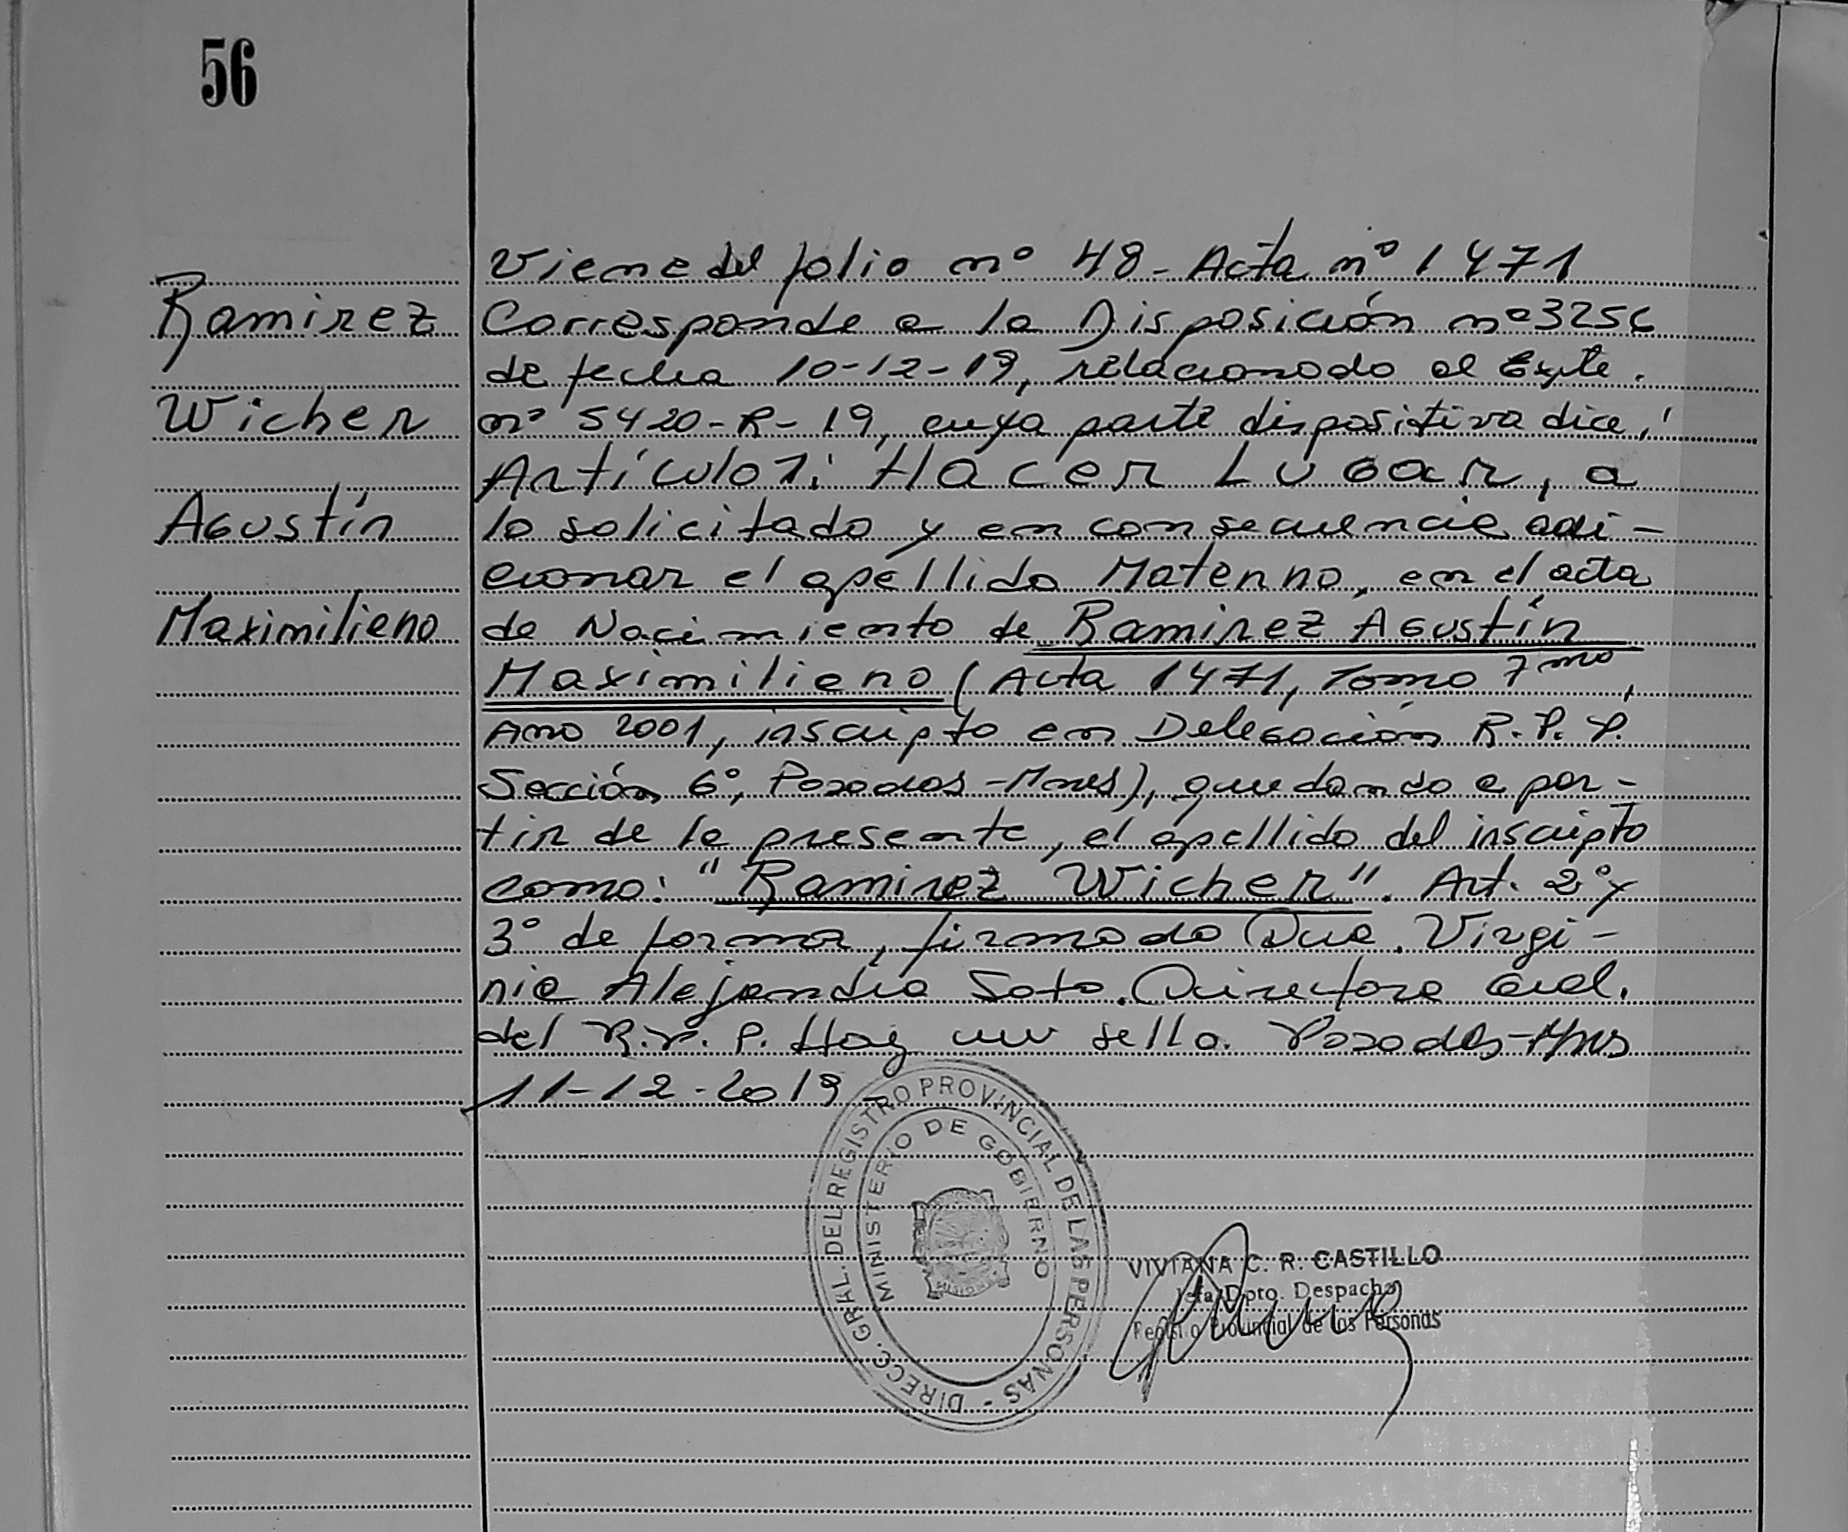 56
Viene del folio nº 48 - Acta nº 1471
Ramirez
Corresponde a la Disposición nº 3256
de fecha 10-12-19, relacionado al Expte.
Wicher
nº 5420-R-19, cuya parte dispositiva dice:
Artículo 1: Hacer Lugar, a
Agustín
lo solicitado y en consecuencia adi-
cionar el apellido Materno, en el acta
Maximiliano
de Nacimiento de Ramirez Agustín
Maximiliano (Acta 1471, Tomo 7mo,
Año 2001, inscripto en Delegación R.P.P.
Sección 6º, Posadas - Mnes), quedando a par-
tir de la presente, el apellido del inscripto
como: "Ramirez Wicher". Art. 2º y
3º de forma, firmado Dra. Virgi-
nia Alejandra Soto. Directora Gral.
del R.P.P. Hay un sello. Posadas - Mnes
11-12-2019
DIRECC. GRAL. DEL REGISTRO PROVINCIAL DE LAS PERSONAS -
MINISTERIO DE GOBIERNO
VIVIANA C. R. CASTILLO
Jefa Dpto. Despacho
Registro Provincial de las Personas